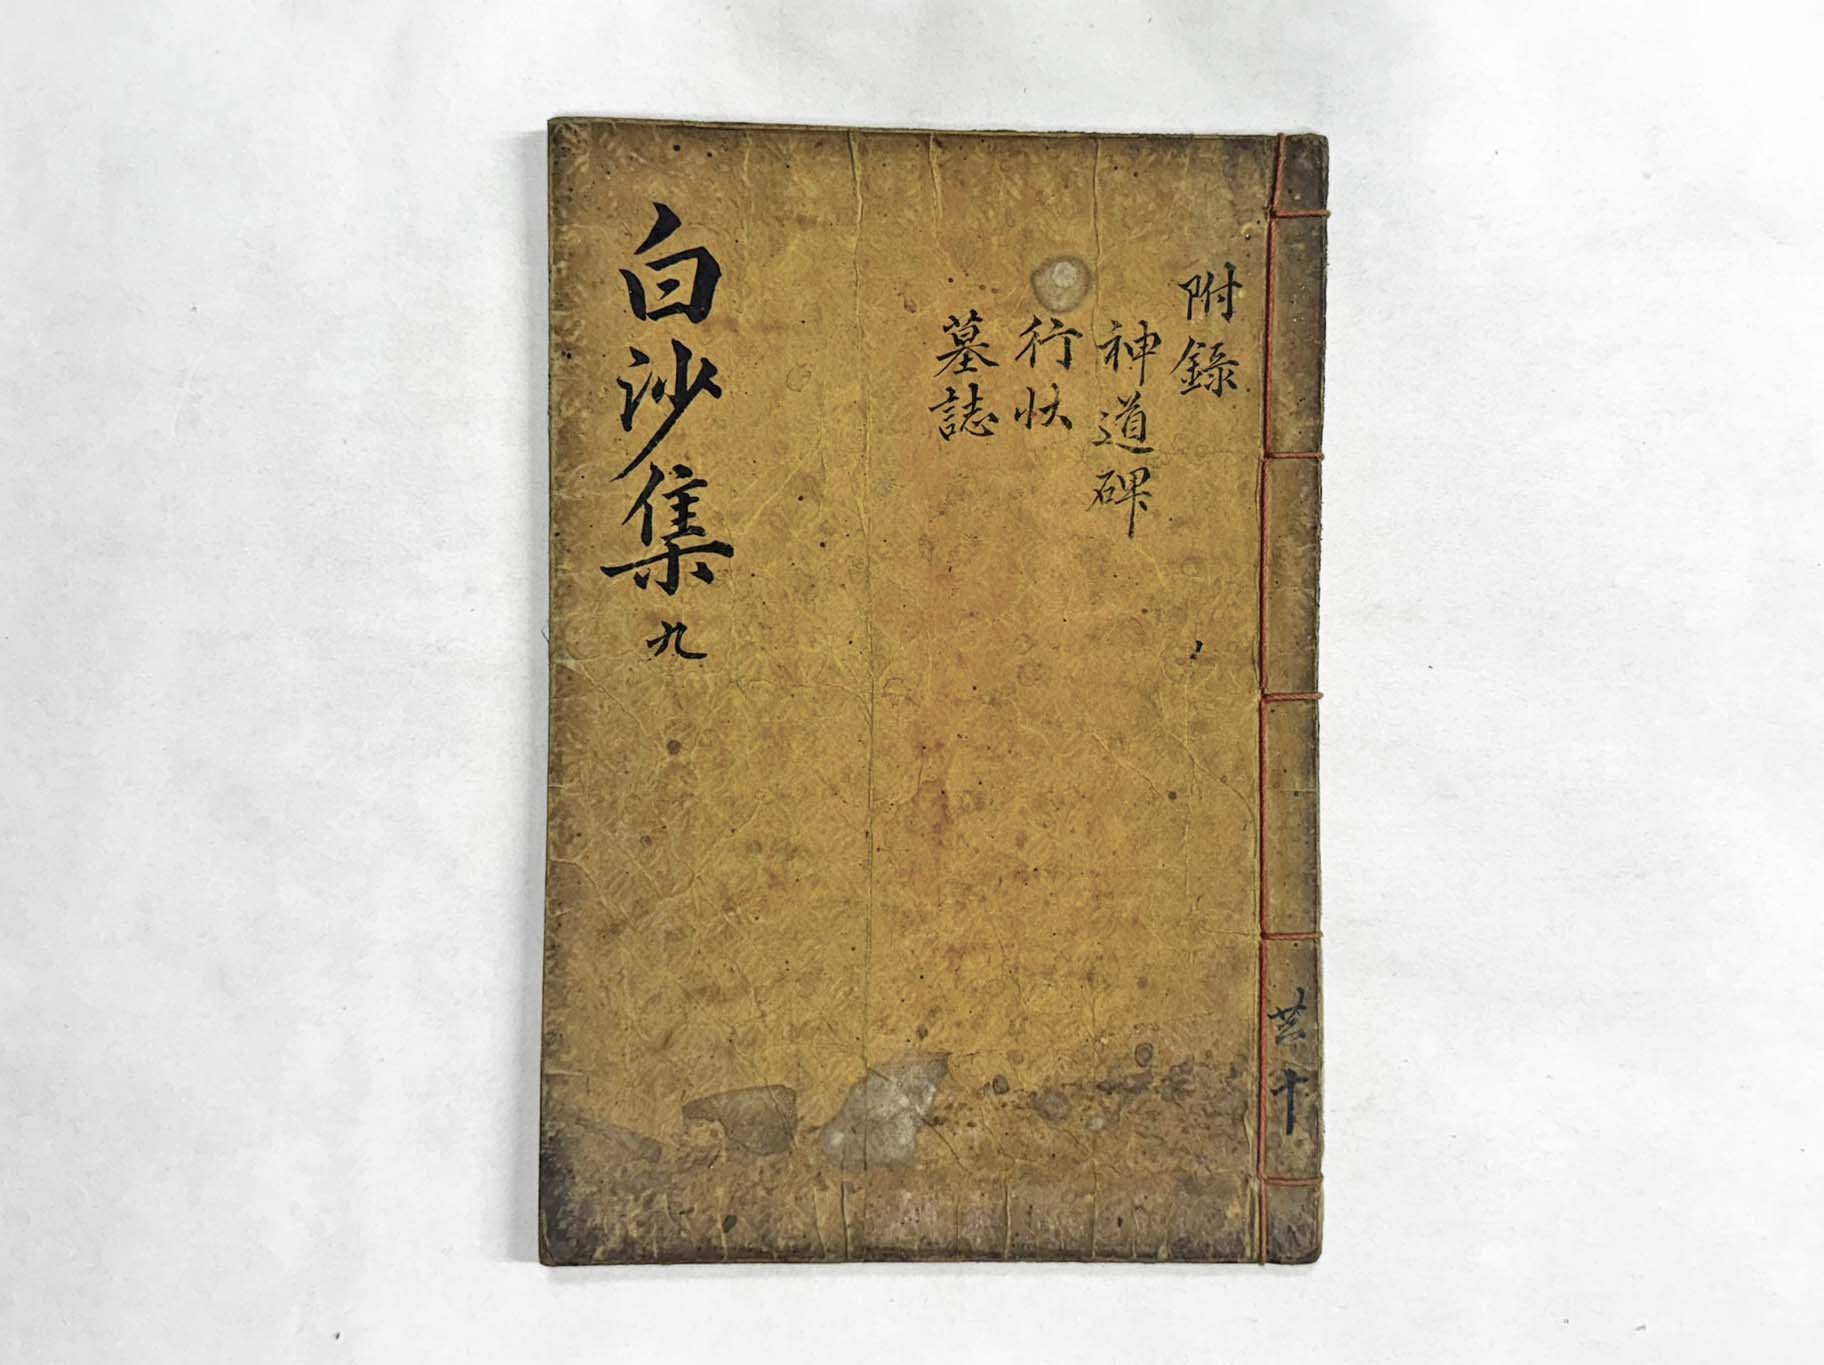 附錄
神道碑
行狀
墓誌
白沙集 九
共十